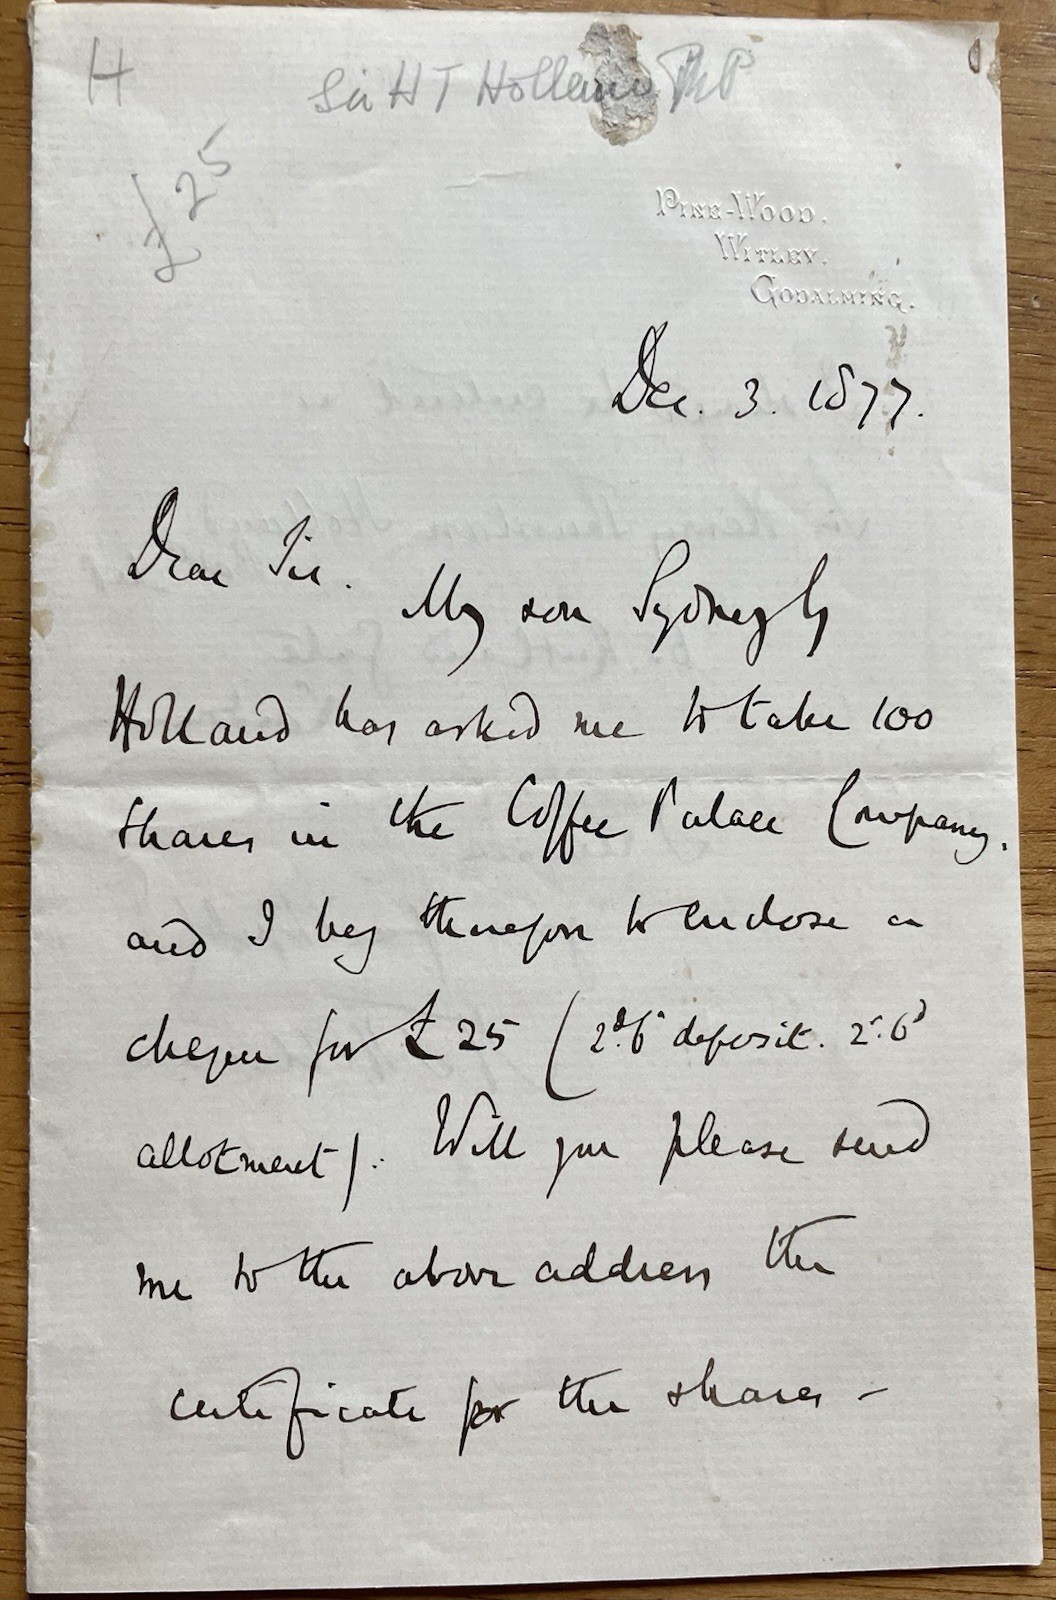 H
Sir H T Holland MP
£25
PINE-WOOD.
WITLEY.
GODALMING.
Dec. 3. 1877.
Dear Sir.
My son Sydney
Holland has asked me to take 100
shares in the Coffee Palace Company.
and I beg thereupon to enclose a
cheque for £25 (2.6 deposit. 2.6
allotment). Will you please send
me to the above address the
certificate for the shares -